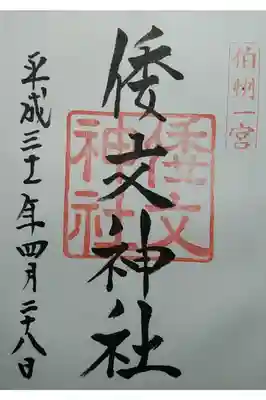 伯州一宮
倭文神社
倭文神社
平成三十一年四月二十八日